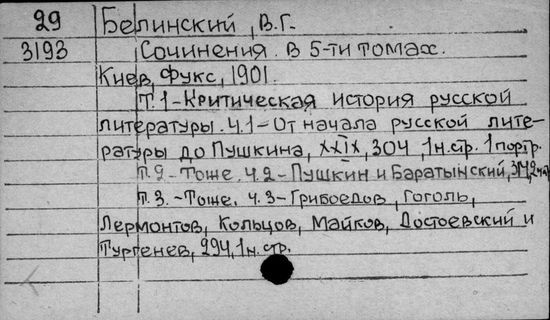 29 Белинский, В.Г.
3193 Сочинения. В 5-ти томах.
Киев, Фукс, 1901.
Т.1-Критическая история русской
литературы. Ч.1-От начала русской лите-
ратуры до Пушкина, XXIX, 304, 1н.стр. 1портр.
Т.2-Тоже. Ч.2-Пушкин и Баратынский,
Т.3.-Тоже. Ч.3-Грибоедов, Гоголь,
Лермонтов, Кольцов, Майков, Достоевский и
Тургенев, 294, 1н.стр.